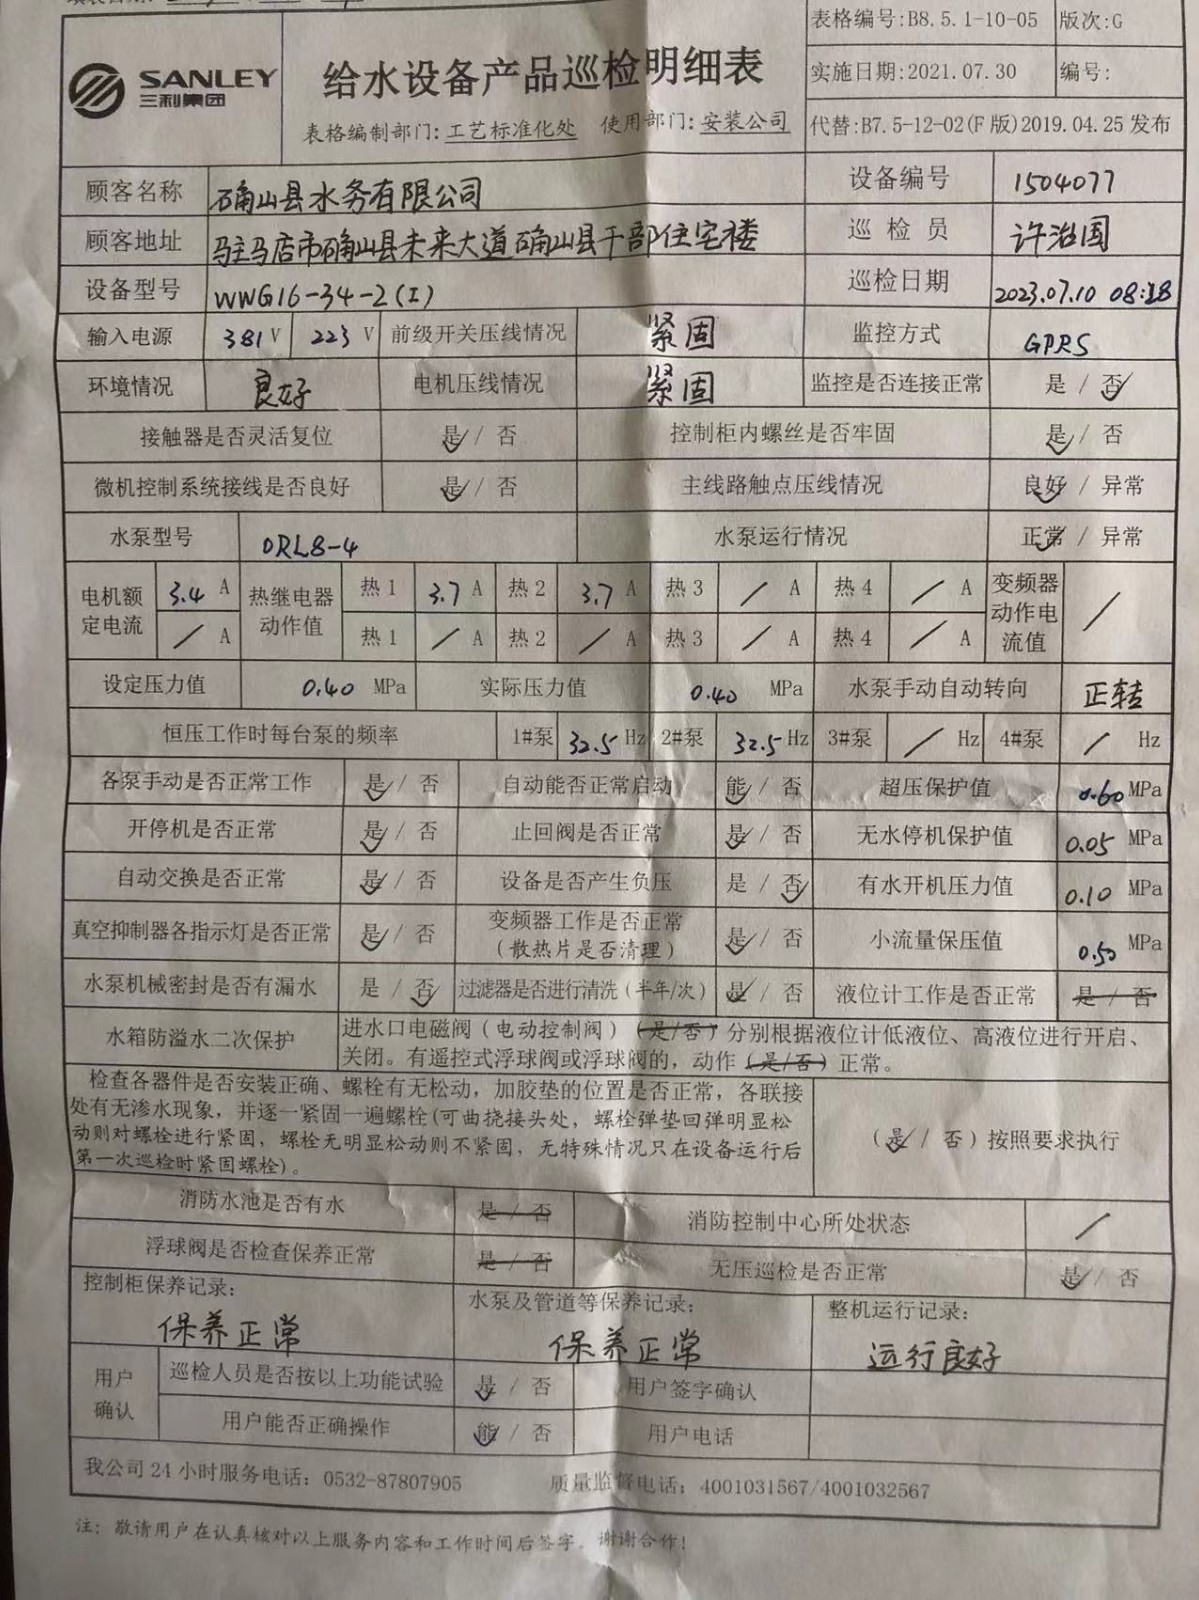 表格编号:B8.5.1-10-05 版次:G
SANLEY
三利集团
给水设备产品巡检明细表
实施日期:2021.07.30 编号:
表格编制部门:工艺标准化处 使用部门:安装公司
代替:B7.5-12-02(F版)2019.04.25发布
顾客名称 确山县水务有限公司 设备编号 1504077
顾客地址 驻马店市确山县未来大道确山县干部住宅楼 巡检员 许治国
设备型号 WWG16-34-2(I) 巡检日期 2023.07.10 08:28
输入电源 381V 223V 前级开关压线情况 紧固 监控方式 GPRS
环境情况 良好 电机压线情况 紧固 监控是否连接正常 是/否
接触器是否灵活复位 是/否 控制柜内螺丝是否牢固 是/否
微机控制系统接线是否良好 是/否 主线路触点压线情况 良好/异常
水泵型号 DRL8-4 水泵运行情况 正常/异常
电机额定电流 3.4 A 热继电器动作值 热1 3.7 A 热2 3.7 A 热3 / A 热4 / A 变频器动作电流值 /
/ A 热1 / A 热2 / A 热3 / A 热4 / A
设定压力值 0.40 MPa 实际压力值 0.40 MPa 水泵手动自动转向 正转
恒压工作时每台泵的频率 1#泵 32.5 Hz 2#泵 32.5 Hz 3#泵 / Hz 4#泵 / Hz
各泵手动是否正常工作 是/否 自动能否正常启动 能/否 超压保护值 0.60 MPa
开停机是否正常 是/否 止回阀是否正常 是/否 无水停机保护值 0.05 MPa
自动交换是否正常 是/否 设备是否产生负压 是/否 有水开机压力值 0.10 MPa
真空抑制器各指示灯是否正常 是/否 变频器工作是否正常(散热片是否清理) 是/否 小流量保压值 0.50 MPa
水泵机械密封是否有漏水 是/否 过滤器是否进行清洗(半年/次) 是/否 液位计工作是否正常 是/否
水箱防溢水二次保护 进水口电磁阀(电动控制阀)(是/否)分别根据液位计低液位、高液位进行开启、
关闭。有遥控式浮球阀或浮球阀的,动作(是/否)正常。
检查各器件是否安装正确、螺栓有无松动,加胶垫的位置是否正常,各联接
处有无渗水现象,并逐一紧固一遍螺栓(可曲挠接头处,螺栓弹垫回弹明显松
动则对螺栓进行紧固,螺栓无明显松动则不紧固,无特殊情况只在设备运行后
第一次巡检时紧固螺栓)。
(是/否)按照要求执行
消防水池是否有水 是/否 消防控制中心所处状态 /
浮球阀是否检查保养正常 是/否 无压巡检是否正常 是/否
控制柜保养记录: 水泵及管道等保养记录: 整机运行记录:
保养正常 保养正常 运行良好
用户确认 巡检人员是否按以上功能试验 是/否 用户签字确认
用户能否正确操作 能/否 用户电话
我公司24小时服务电话:0532-87807905 质量监督电话:4001031567/4001032567
注:敬请用户在认真核对以上服务内容和工作时间后签字。谢谢合作!